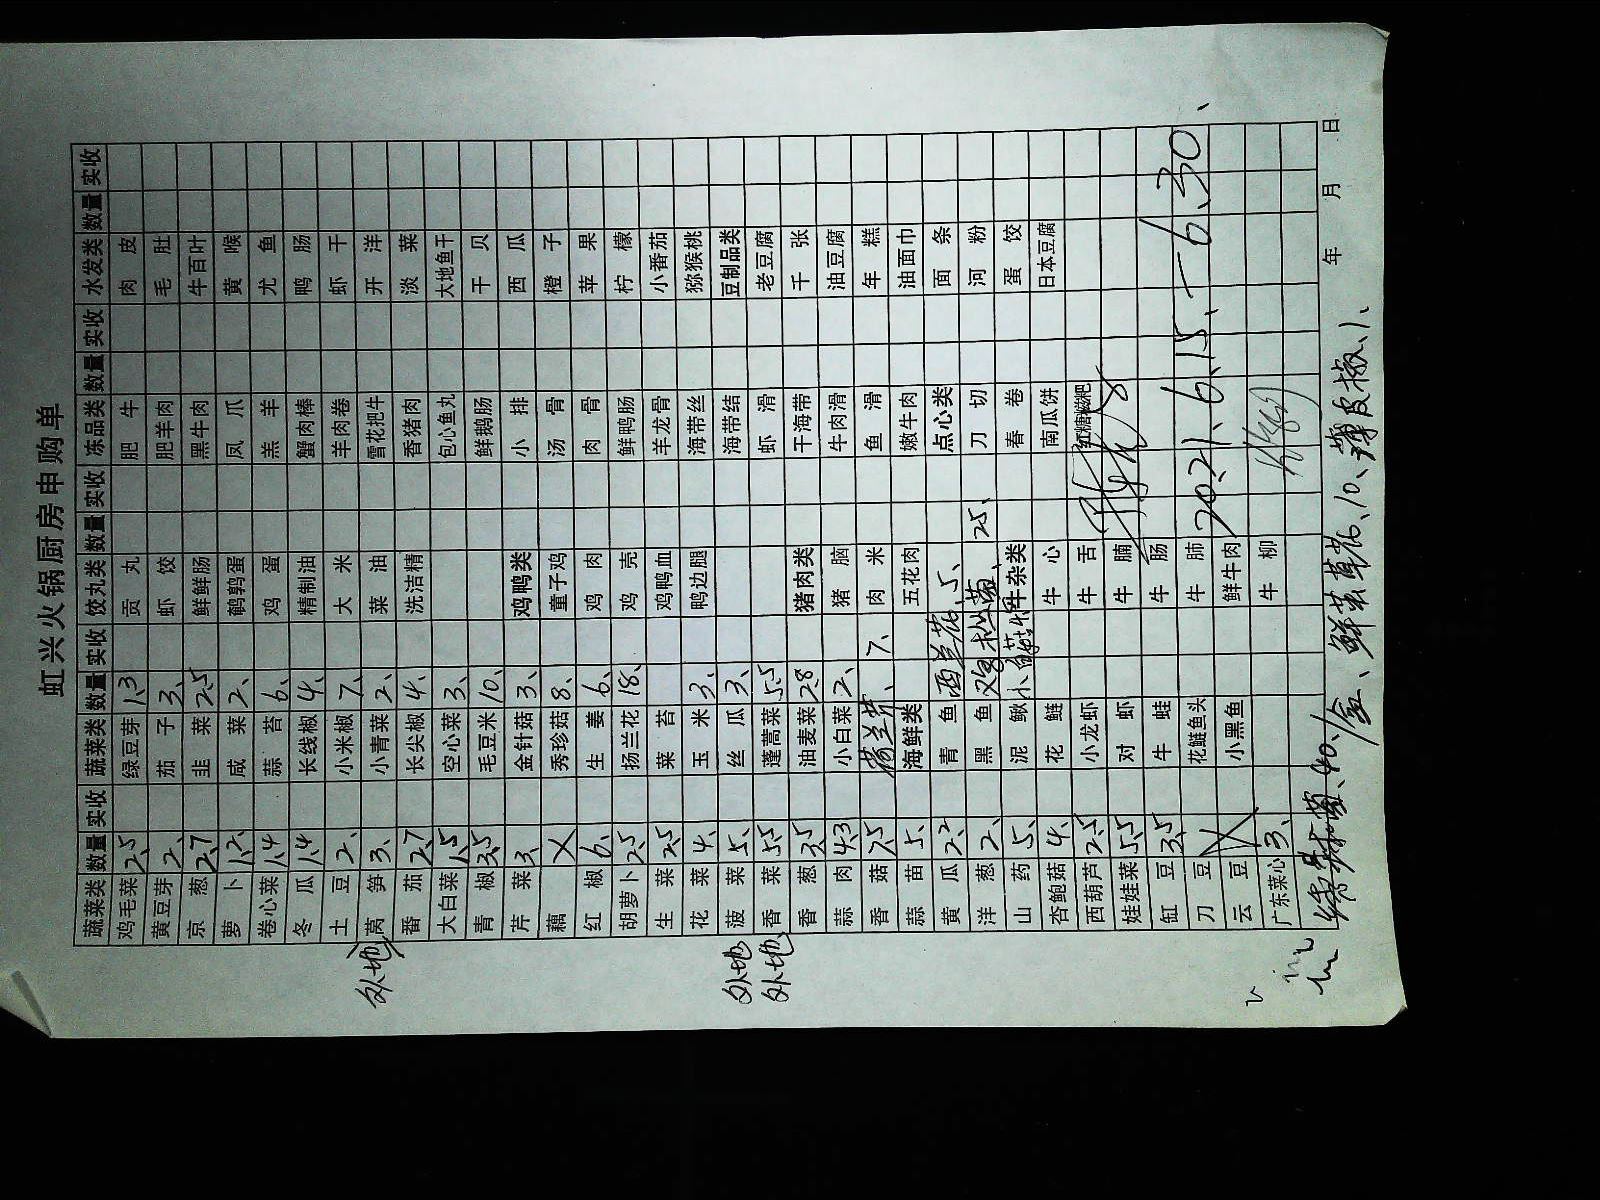 虹兴火锅厨房申购单
蔬菜类 数量 实收 蔬菜类 数量 实收 饺丸类 数量 实收 冻品类 数量 实收 水发类 数量 实收
鸡毛菜 2.5 绿豆芽 1.3 贡丸 肥牛 肉皮
黄豆芽 2、 茄子 3、 虾饺 肥羊肉 毛肚
京葱 2.7 韭菜 2.5 鲜鲜肠 黑牛肉 牛百叶
萝卜 1.2、 咸菜 2、 鹌鹑蛋 凤爪 黄喉
卷心菜 1.4 蒜苔 6、 鸡蛋 羔羊 尤鱼
冬瓜 1.4 长线椒 4、 精制油 蟹肉棒 鸭肠
土豆 2、 小米椒 7、 大米 羊肉卷 虾干
外地 莴笋 3、 小青菜 2、 菜油 雪花把牛 开洋
番茄 2.7 长尖椒 4、 洗洁精 香猪肉 淡菜
大白菜 1.5 空心菜 3、 包心鱼丸 大地鱼干
青椒 3.5 毛豆米 10、 鲜鹅肠 干贝
芹菜 3、 金针菇 3、 鸡鸭类 小排 西瓜
藕 X 秀珍菇 8、 童子鸡 汤骨 橙子
红椒 6、 生姜 6、 鸡肉 肉骨 苹果
胡萝卜 2.5 扬兰花 18、 鸡壳 鲜鸭肠 柠檬
生菜 2.5 菜苔 鸡鸭血 羊龙骨 小番茄
花菜 4、 玉米 3、 鸭边腿 海带丝 猕猴桃
外地 菠菜 5、 丝瓜 3、 海带结 豆制品类
外地 香菜 5.5 蓬蒿菜 5.5 虾滑 老豆腐
香葱 3.5 油麦菜 2.8 猪肉类 干海带 千张
蒜肉 4.3 小白菜 2、 猪脑 牛肉滑 油豆腐
香菇 7.5 荷兰芹、 7、 肉米 鱼滑 年糕
蒜苗 5、 海鲜类 五花肉 嫩牛肉 油面巾
黄瓜 2.2 青鱼 西兰花、5、 点心类 面条
洋葱 2、 黑鱼 25、 刀切 河粉
山药 5、 泥鳅 牛杂类 春卷 蛋饺
杏鲍菇 4、 花鲢 牛心 南瓜饼 日本豆腐
西葫芦 2.5 小龙虾 牛舌 红糖糍粑
娃娃菜 5.5 对虾 牛腩
缸豆 3.5 牛蛙 牛肠
刀豆 X 花鲢鱼头 牛肺 2021、6、15、—6、30、
云豆 X 小黑鱼 鲜牛肉
广东菜心 3、 牛柳
40、 鲜 10、薄皮椒、1、
年 月 日